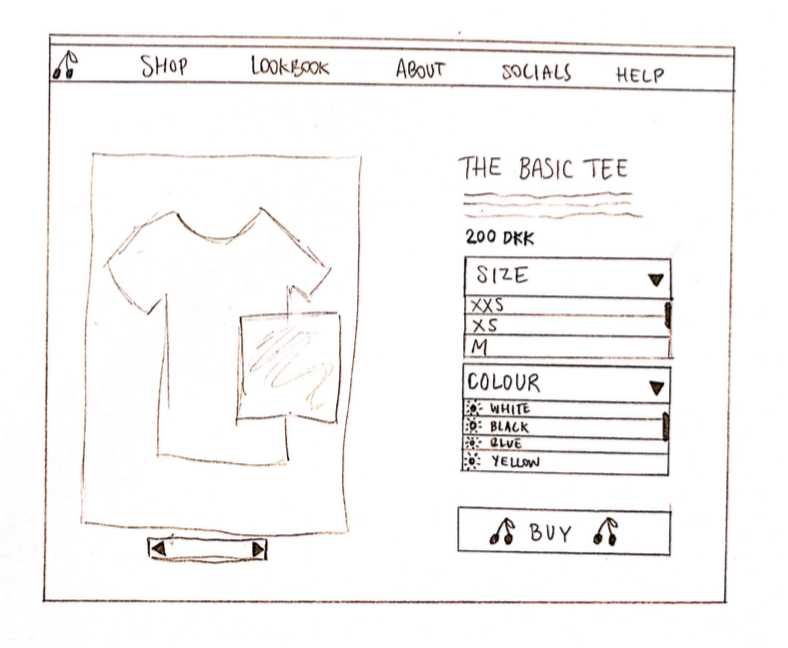 SHOP LOOKBOOK ABOUT SOCIALS HELP
THE BASIC TEE
200 DKK
SIZE
XXS
XS
M
COLOUR
WHITE
BLACK
BLUE
YELLOW
BUY